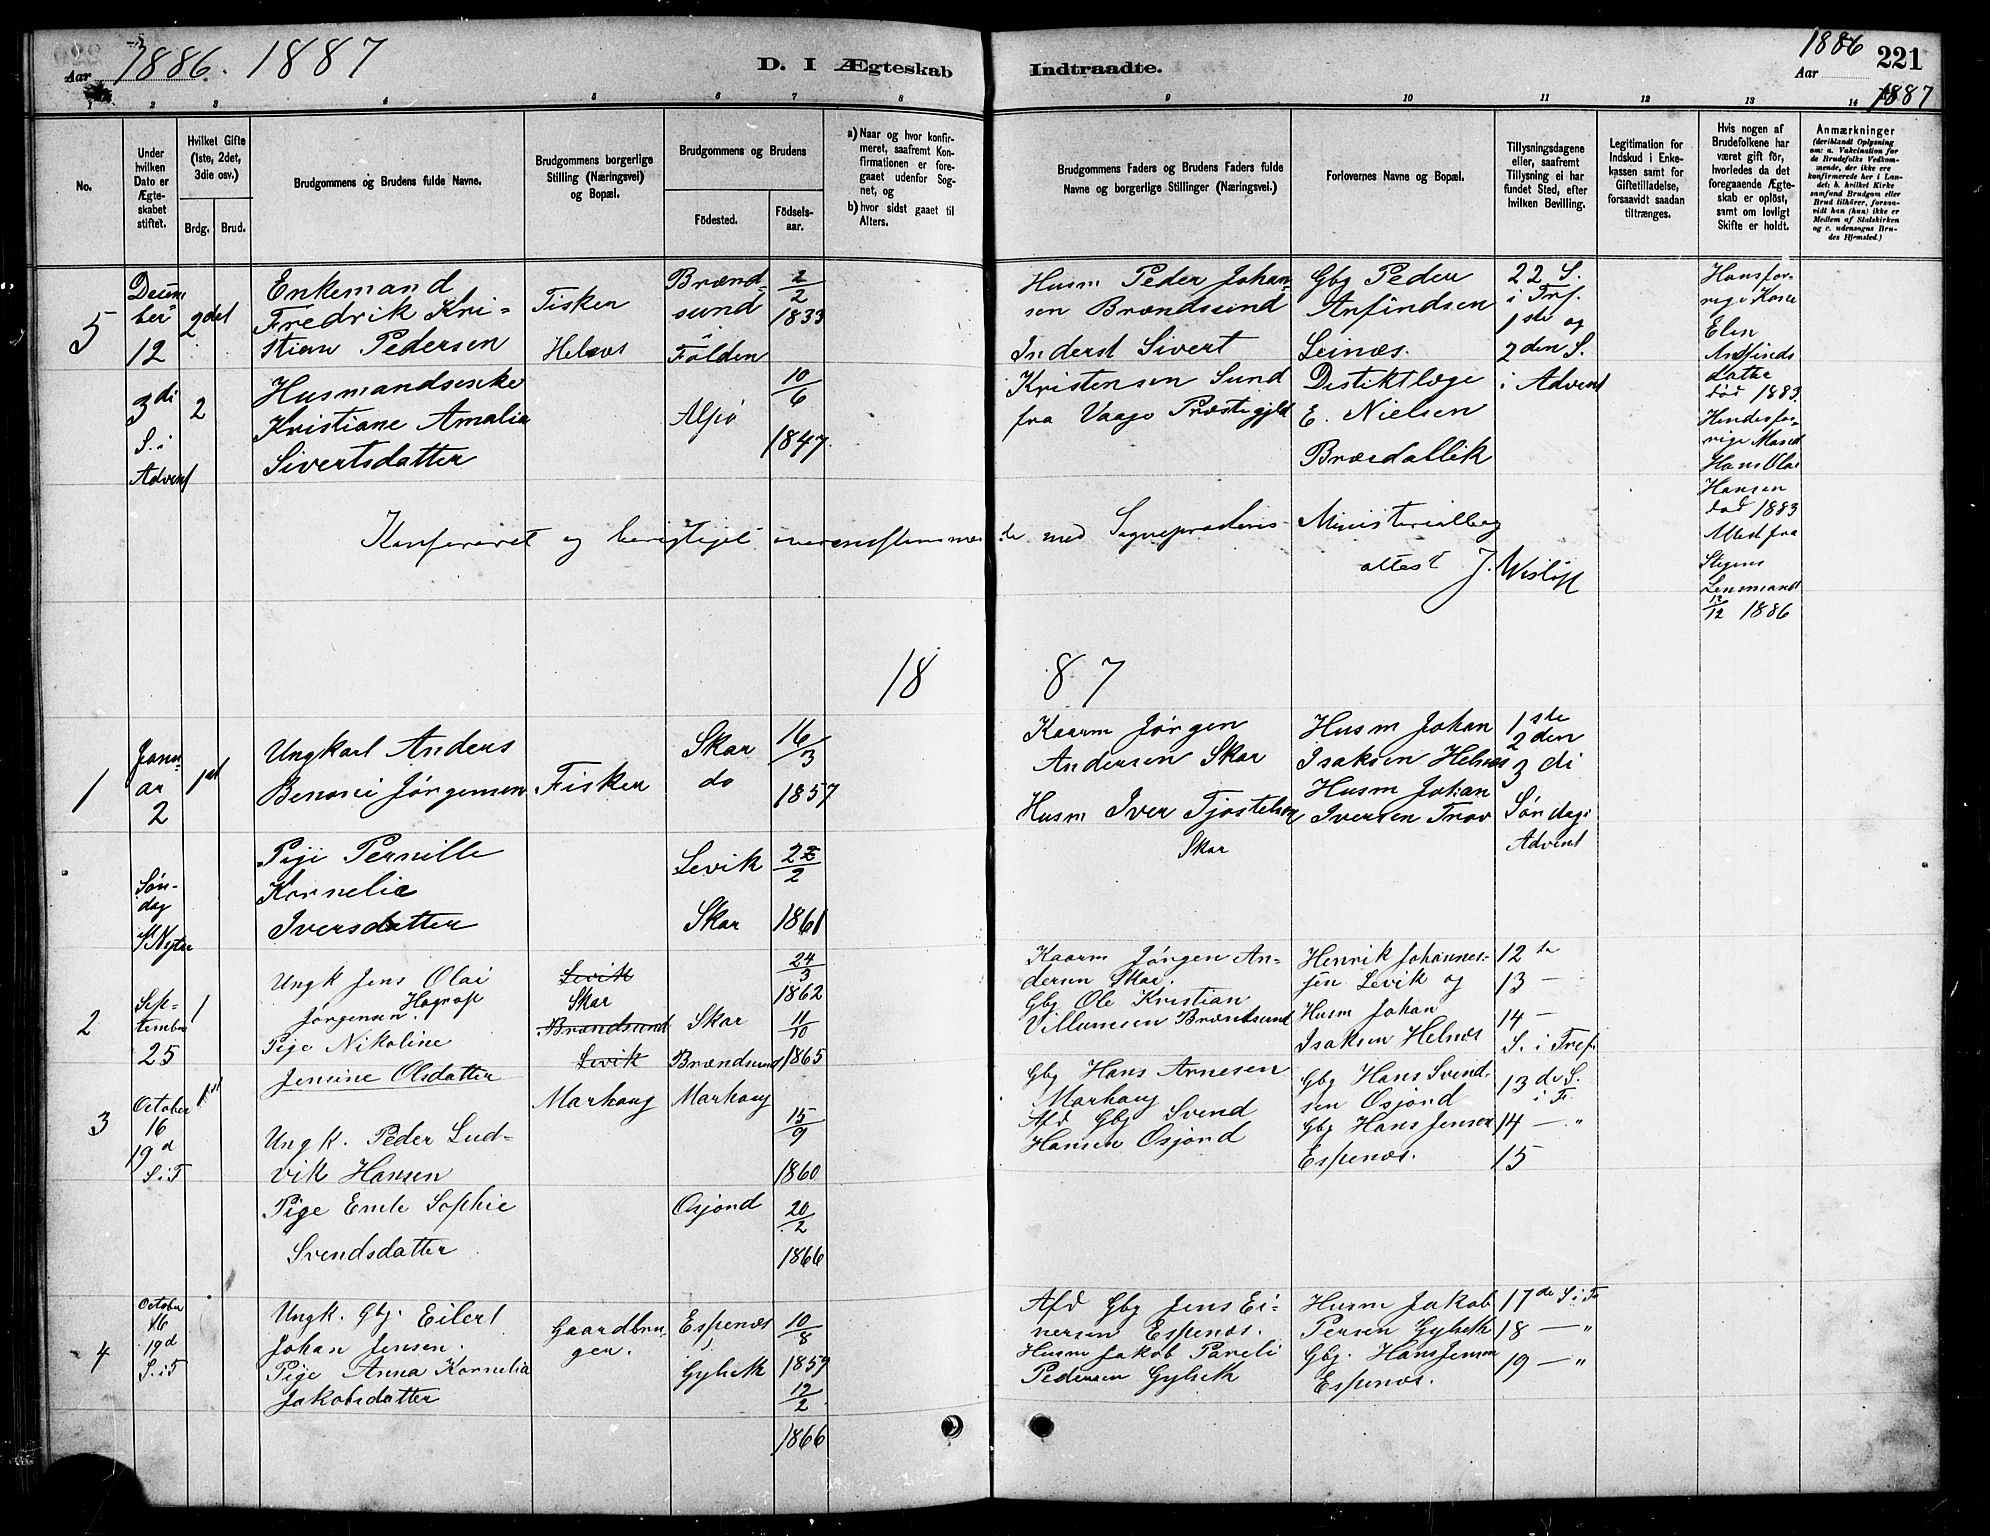 1886. 1887
Aar
D. I Ægteskab
Indtraadte.
1886
Aar
221
1887
2 3 4 5 6 7 8
9 10 11 12 13 14
No.
Under hvilken Dato er Ægteskabet stiftet.
Hvilket Gifte (1ste, 2det, 3die osv.)
Brdg. Brud.
Brudgommens og Brudens fulde Navne.
Brudgommens borgerlige Stilling (Næringsvei) og Bopæl.
Brudgommens og Brudens
Födested.
Födselsaar.
a) Naar og hvor konfirmeret, saafremt Konfirmationen er foregaaet udenfor Sognet, og
b) hvor sidst gaaet til Alters.
Brudgommens Faders og Brudens Faders fulde Navne og borgerlige Stillinger (Næringsvei.)
Forlovernes Navne og Bopæl.
Tillysningsdagene eller, saafremt Tillysning ei har fundet Sted, efter hvilken Bevilling.
Legitimation for Indskud i Enkekassen samt for Giftetilladelse, forsaavidt saadan tiltrænges.
Hvis nogen af Brudefolkene har været gift för, hvorledes da det foregaaende Ægteskab er oplöst, samt om lovligt Skifte er holdt.
Anmærkninger
(deriblandt Oplysning om: a. Vakcination for de Brudefolks Vedkommende, der ikke ere konfirmerede her i Landet; b. hvilket Kirkesamfund Brudgom eller Brud tilhörer, forsaavidt han (hun) ikke er Medlem af Statskirken og c. udensogns Brudes Hjemsted.)
5
Decem
ber
12
3di
S. i
Advent
2det
2
Enkemand
Fredrik Kri-
stian Pedersen
Husmandsenke
Kristiane Amalia
Sivertsdatter
Fisker
Helnes
Brænd-
sund
i
Folden
Alsø
2/2
1833
10/6
1847.
Husm Peder Johan
sen Brændsund
Inderst Sivert
Kristensen Sund
fra Vaage Præstegjeld
Gbg Peder
Anfindsen
Leines.
Distiktlæge
E. Nielsen
22 S.
i Tref.
1ste og
2den S.
i Advent
Hans for-
rige Kone
Elen
død 1883.
Hendes for-
rige Mand
Hans Olai
Hansen
død 1883
Attest fra
Stegens
Lensmand
13/12 1886
Konfereret og berigtiget overensstemmen de med Sognepræstens Ministerialbog
attest J. Wisløff
1887
1
Janu-
ar
2
Søn-
dag
Nytaar
1st
Ungkarl Anders
Benoni Jørgensen
Pige Pernille
Kornelia
Iversdatter
Fisker
Skar
do
Levik
Skar
16/3
1857
22/2
1861
Kaarm Jørgen
Andersen Skar
Husm Iver Tjostelsen
Skar
Husm Johan
Isaksen Helnes
Husm Johan
Iversen Trov
1ste
2den
3di
Søndag i
Advent
2
Sep-
tember
25
1
Ungk Jens Olai
Jørgensen Hagrap
Pige Nikoline
Jensine Olsdatter
Levik
Skar
Brændsund
Levik
Skar
Brændsund
24/3
1862
11/10
1865
Kaarm Jørgen An-
dersen Skar.
Gbg Ole Kristian
Villumsen Brændsund
Henrik Johannes-
sen Levik og
Husm Johan
Isaksen Helnæs
12te
13 —
14 —
S. i Tref.
3
October
16
19d
S. i T
1st
Ungk. Peder Lud-
vik Hansen
Pige Emele Sophie
Svendsdatter
Marhaug
Marhaug
Osjord
15/9
1860
20/2
1866
Gbg Hans Arnesen
Marhaug
Afd Gbg Svend
Hansen Osjord
Gbg Hans Svend-
sen Osjord
Gbg Hans Jensen
Espenæs.
13de S.
i T.
14 — "
15
4
October
16
19d
S. i T
Ungk. Gbg. Eilert
Johan Jensen.
Pige Anna Kornelia
Jakobsdatter
Gaardbru-
ger.
Espenæs
Gylseth
10/8
1859
12/2
1866
Afd Gbg Jens Ei-
nersen Espenæs.
Husm Jakob Pareli
Pedersen Gylseth
Husm Jakob
Persen Gylseth
Gbg. Hans Jensen
Espenæs.
17de S. i Tr
18 — "
19 — "